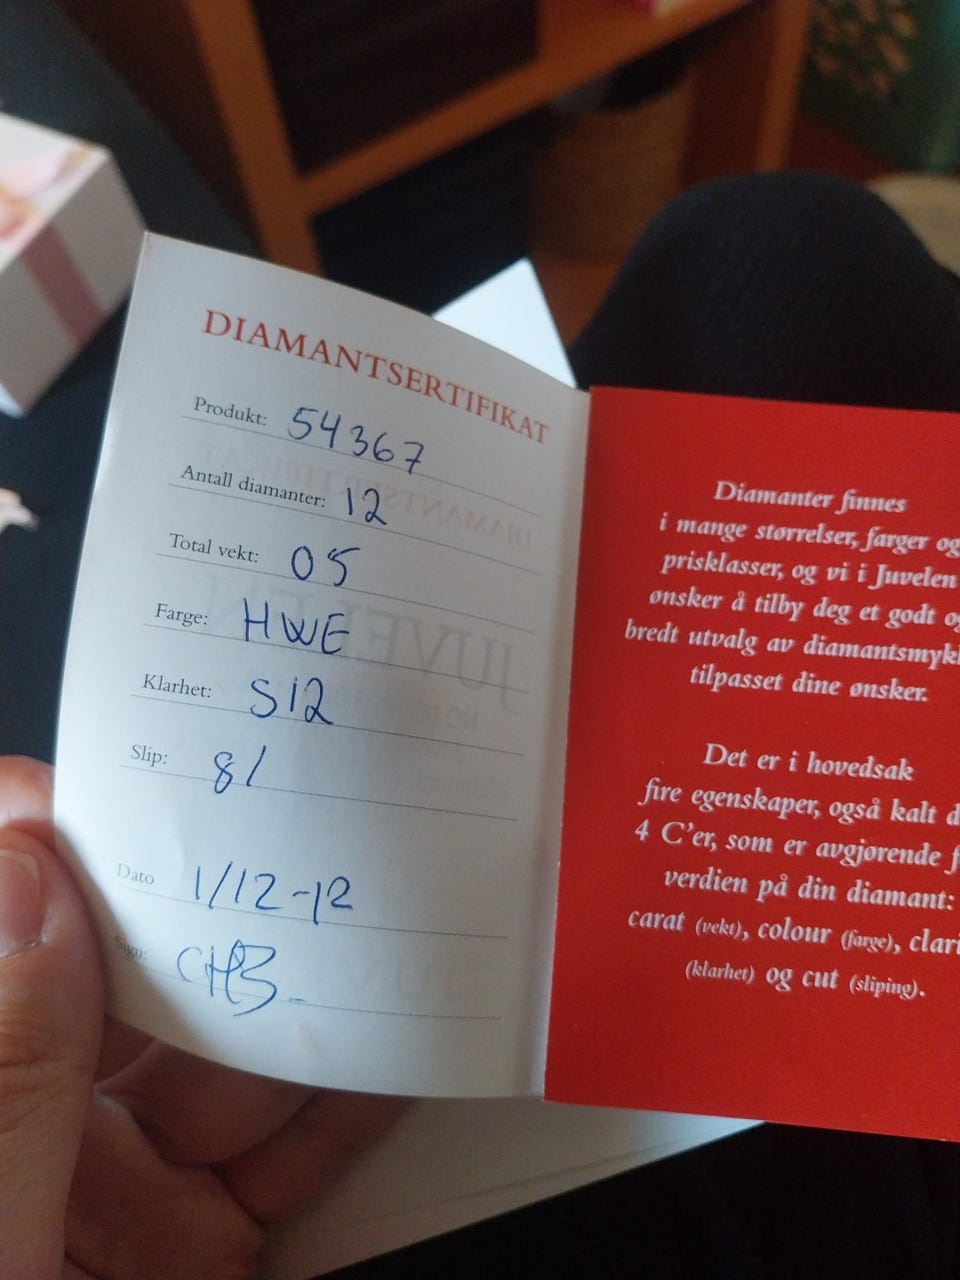 DIAMANTSERTIFIKAT
Produkt: 54367
Antall diamanter: 12
Total vekt: 05
Farge: HWE
Klarhet: S12
Slip: 8/
Dato 1/12-12
Sign: CHB
Diamanter finnes
i mange størrelser, farger og
prisklasser, og vi i Juvelen
ønsker å tilby deg et godt og
bredt utvalg av diamantsmykk
tilpasset dine ønsker.
Det er i hovedsak
fire egenskaper, også kalt d
4 C'er, som er avgjørende f
verdien på din diamant:
carat (vekt), colour (farge), clari
(klarhet) og cut (sliping).